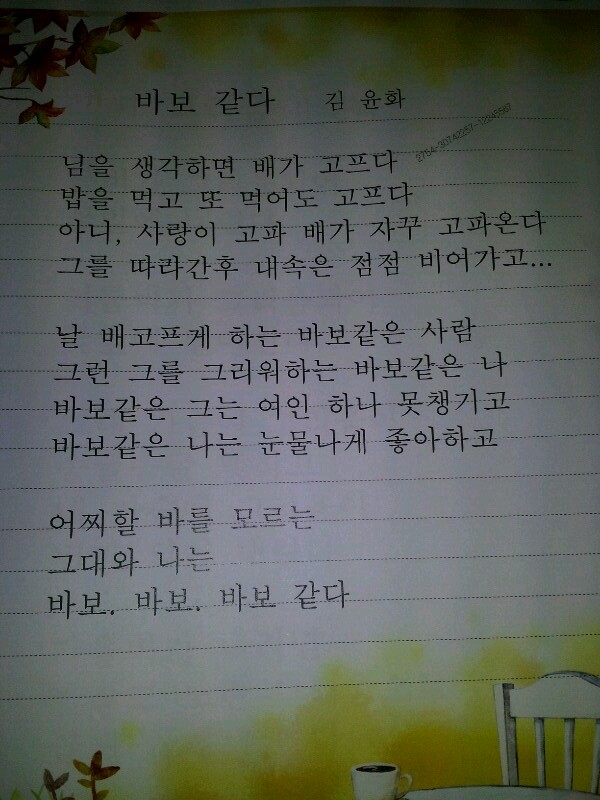 바보 같다 김 윤화
님을 생각하면 배가 고프다
밥을 먹고 또 먹어도 고프다
아니, 사랑이 고파 배가 자꾸 고파온다
그를 따라간후 내속은 점점 비어가고...
날 배고프게 하는 바보같은 사람
그런 그를 그리워하는 바보같은 나
바보같은 그는 여인 하나 못챙기고
바보같은 나는 눈물나게 좋아하고
어찌할 바를 모르는
그대와 나는
바보. 바보. 바보 같다